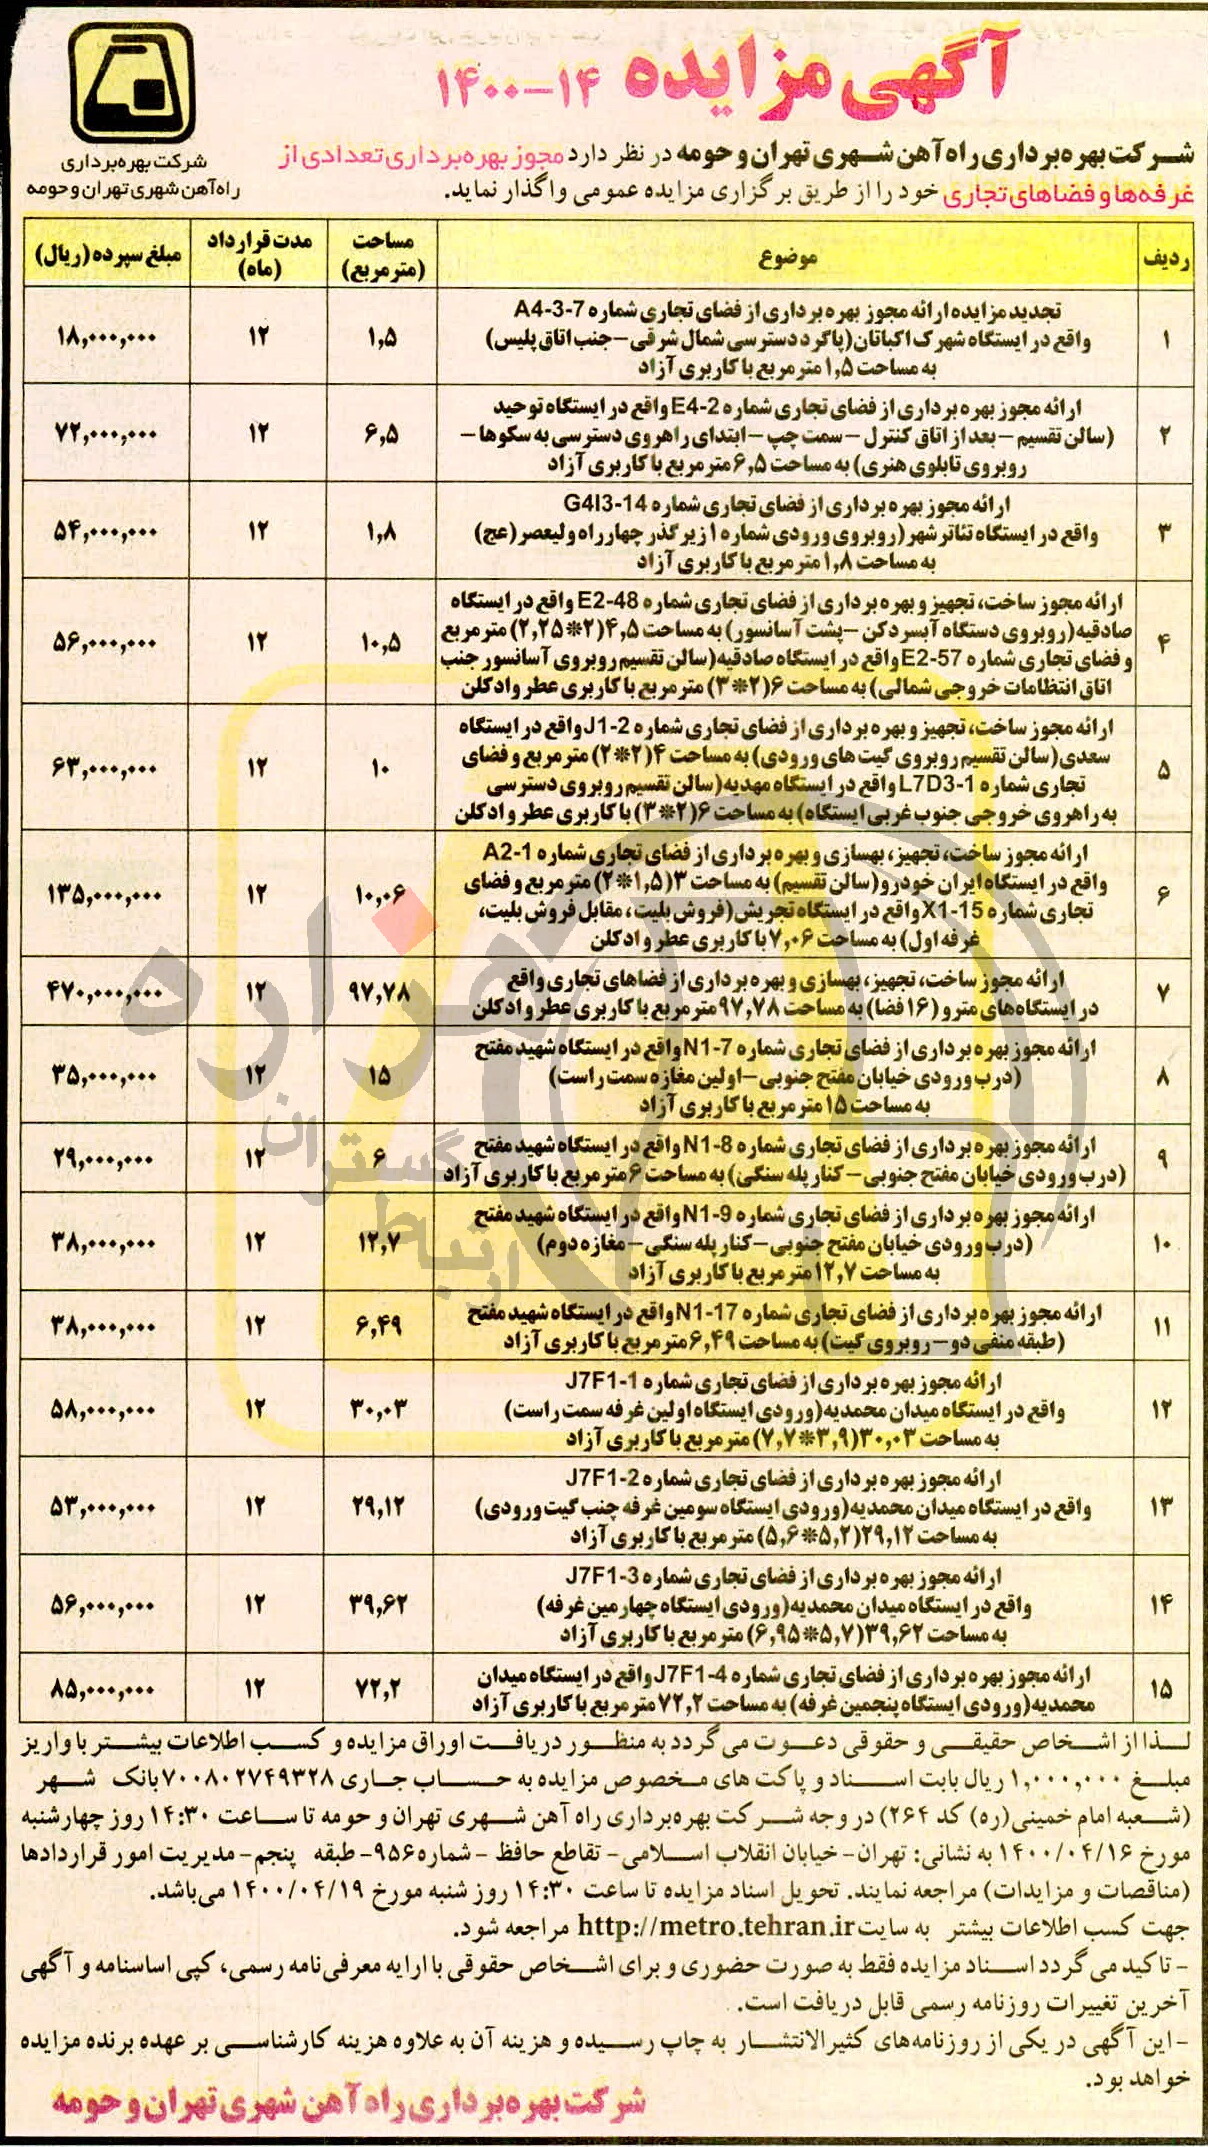 آگهی مزایده ۱۴-۱۴۰۰
شرکت بهره‌برداری
راه‌آهن شهری تهران و حومه
شرکت بهره‌برداری راه‌آهن شهری تهران و حومه در نظر دارد مجوز بهره‌برداری تعدادی از
غرفه‌ها و فضاهای تجاری خود را از طریق برگزاری مزایده عمومی واگذار نماید.
ردیف موضوع مساحت (مترمربع) مدت قرارداد (ماه) مبلغ سپرده (ریال)
۱
تجدید مزایده ارائه مجوز بهره برداری از فضای تجاری شماره A4-3-7
واقع در ایستگاه شهرک اکباتان(پاگرد دسترسی شمال شرقی -جنب اتاق پلیس)
به مساحت ۱,۵ متر مربع با کاربری آزاد
۱,۵ ۱۲ ۱۸,۰۰۰,۰۰۰
۲
ارائه مجوز بهره برداری از فضای تجاری شماره E4-2 واقع در ایستگاه توحید
(سالن تقسیم - بعد از اتاق کنترل - سمت چپ - ابتدای راهروی دسترسی به سکوها -
روبروی تابلوی هنری) به مساحت ۶,۵ متر مربع با کاربری آزاد
۶,۵ ۱۲ ۷۲,۰۰۰,۰۰۰
۳
ارائه مجوز بهره برداری از فضای تجاری شماره G4I3-14
واقع در ایستگاه تئاتر شهر (روبروی ورودی شماره ۱ زیر گذر چهارراه ولیعصر(عج)
به مساحت ۱,۸ متر مربع با کاربری آزاد
۱,۸ ۱۲ ۵۴,۰۰۰,۰۰۰
۴
ارائه مجوز ساخت، تجهیز و بهره برداری از فضای تجاری شماره E2-48 واقع در ایستگاه
صادقیه(روبروی دستگاه آبسردکن -پشت آسانسور) به مساحت ۴,۵(۲*۲,۲۵) متر مربع
و فضای تجاری شماره E2-57 واقع در ایستگاه صادقیه(سالن تقسیم روبروی آسانسور جنب
اتاق انتظامات خروجی شمالی) به مساحت ۶(۲*۳) متر مربع با کاربری عطر و ادکلن
۱۰,۵ ۱۲ ۵۶,۰۰۰,۰۰۰
۵
ارائه مجوز ساخت، تجهیز و بهره برداری از فضای تجاری شماره J1-2 واقع در ایستگاه
سعدی(سالن تقسیم روبروی گیت های ورودی) به مساحت ۴(۲*۲) متر مربع و فضای
تجاری شماره L7D3-1 واقع در ایستگاه مهدیه(سالن تقسیم روبروی دسترسی
به راهروی خروجی جنوب غربی ایستگاه) به مساحت ۶(۲*۳) با کاربری عطر و ادکلن
۱۰ ۱۲ ۶۳,۰۰۰,۰۰۰
۶
ارائه مجوز ساخت، تجهیز، بهسازی و بهره برداری از فضای تجاری شماره A2-1
واقع در ایستگاه ایران خودرو(سالن تقسیم) به مساحت ۳(۱,۵*۲) متر مربع و فضای
تجاری شماره X1-15 واقع در ایستگاه تجریش(فروش بلیت، مقابل فروش بلیت،
غرفه اول) به مساحت ۷,۰۶ با کاربری عطر و ادکلن
۱۰,۰۶ ۱۲ ۱۳۵,۰۰۰,۰۰۰
۷
ارائه مجوز ساخت، تجهیز، بهسازی و بهره برداری از فضاهای تجاری واقع
در ایستگاه‌های مترو (۱۶ فضا) به مساحت ۹۷,۷۸ متر مربع با کاربری عطر و ادکلن
۹۷,۷۸ ۱۲ ۴۷۰,۰۰۰,۰۰۰
۸
ارائه مجوز بهره برداری از فضای تجاری شماره N1-7 واقع در ایستگاه شهید مفتح
(درب ورودی خیابان مفتح جنوبی -اولین مغازه سمت راست)
به مساحت ۱۵ متر مربع با کاربری آزاد
۱۵ ۱۲ ۳۵,۰۰۰,۰۰۰
۹
ارائه مجوز بهره برداری از فضای تجاری شماره N1-8 واقع در ایستگاه شهید مفتح
(درب ورودی خیابان مفتح جنوبی - کنار پله سنگی) به مساحت ۶ متر مربع با کاربری آزاد
۶ ۱۲ ۲۹,۰۰۰,۰۰۰
۱۰
ارائه مجوز بهره برداری از فضای تجاری شماره N1-9 واقع در ایستگاه شهید مفتح
(درب ورودی خیابان مفتح جنوبی - کنار پله سنگی - مغازه دوم)
به مساحت ۱۲,۷ متر مربع با کاربری آزاد
۱۲,۷ ۱۲ ۳۸,۰۰۰,۰۰۰
۱۱
ارائه مجوز بهره برداری از فضای تجاری شماره N1-17 واقع در ایستگاه شهید مفتح
(طبقه منفی دو - روبروی گیت) به مساحت ۶,۴۹ متر مربع با کاربری آزاد
۶,۴۹ ۱۲ ۳۸,۰۰۰,۰۰۰
۱۲
ارائه مجوز بهره برداری از فضای تجاری شماره J7F1-1
واقع در ایستگاه میدان محمدیه(ورودی ایستگاه اولین غرفه سمت راست)
به مساحت ۳۰,۰۳(۳,۹*۷,۷) متر مربع با کاربری آزاد
۳۰,۰۳ ۱۲ ۵۸,۰۰۰,۰۰۰
۱۳
ارائه مجوز بهره برداری از فضای تجاری شماره J7F1-2
واقع در ایستگاه میدان محمدیه(ورودی ایستگاه سومین غرفه جنب گیت ورودی)
به مساحت ۲۹,۱۲(۵,۲*۵,۶) متر مربع با کاربری آزاد
۲۹,۱۲ ۱۲ ۵۳,۰۰۰,۰۰۰
۱۴
ارائه مجوز بهره برداری از فضای تجاری شماره J7F1-3
واقع در ایستگاه میدان محمدیه(ورودی ایستگاه چهارمین غرفه)
به مساحت ۳۹,۶۲(۵,۷*۶,۹۵) متر مربع با کاربری آزاد
۳۹,۶۲ ۱۲ ۵۶,۰۰۰,۰۰۰
۱۵
ارائه مجوز بهره برداری از فضای تجاری شماره J7F1-4 واقع در ایستگاه میدان
محمدیه(ورودی ایستگاه پنجمین غرفه) به مساحت ۷۲,۲ متر مربع با کاربری آزاد
۷۲,۲ ۱۲ ۸۵,۰۰۰,۰۰۰
لذا از اشخاص حقیقی و حقوقی دعوت می گردد به منظور دریافت اوراق مزایده و کسب اطلاعات بیشتر با واریز
مبلغ ۱,۰۰۰,۰۰۰ ریال بابت اسناد و پاکت های مخصوص مزایده به حساب جاری ۷۰۰۸۰۲۷۴۹۳۲۸ بانک شهر
(شعبه امام خمینی(ره) کد ۲۶۴) در وجه شرکت بهره‌برداری راه آهن شهری تهران و حومه تا ساعت ۱۴:۳۰ روز چهارشنبه
مورخ ۱۴۰۰/۰۴/۱۶ به نشانی: تهران- خیابان انقلاب اسلامی- تقاطع حافظ -شماره ۹۵۶- طبقه پنجم- مدیریت امور قراردادها
(مناقصات و مزایدات) مراجعه نمایند. تحویل اسناد مزایده تا ساعت ۱۴:۳۰ روز شنبه مورخ ۱۴۰۰/۰۴/۱۹ می‌باشد.
جهت کسب اطلاعات بیشتر به سایت http://metro.tehran.ir مراجعه شود.
- تاکید می گردد اسناد مزایده فقط به صورت حضوری و برای اشخاص حقوقی با ارایه معرفی‌نامه رسمی، کپی اساسنامه و آگهی
آخرین تغییرات روزنامه رسمی قابل دریافت است.
- این آگهی در یکی از روزنامه‌های کثیرالانتشار به چاپ رسیده و هزینه آن به علاوه هزینه کارشناسی بر عهده برنده مزایده
خواهد بود.
شرکت بهره‌برداری راه آهن شهری تهران و حومه
هزاره